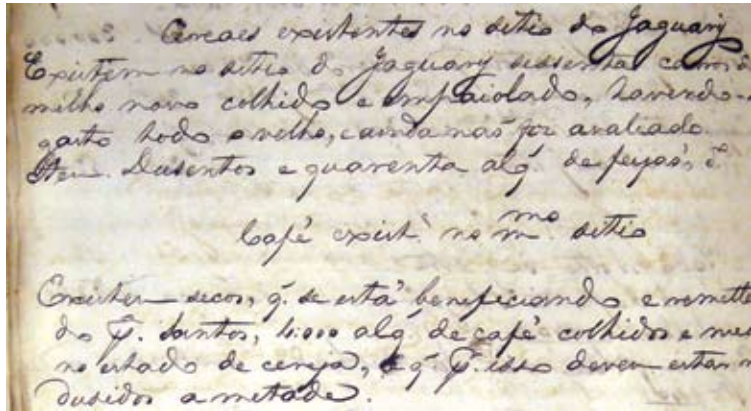 Cereaes existentes no sitio do Jaguary
Existem no sitio do Jaguary sessenta carros d
milho novo colhido e empaiolado, havendo-
gasto todo o velho, e ainda naõ foi avaliado.
Item. Dusentos e quarenta alq. de feijaõ,
Café exist.e no m.mo sitio
Existem secos, q. se está beneficiando e remett
do p. Santos, 4.000 alq. de café colhidos e me
no estado de cereja, e q. p. isso devem estar
dusidos a metade.